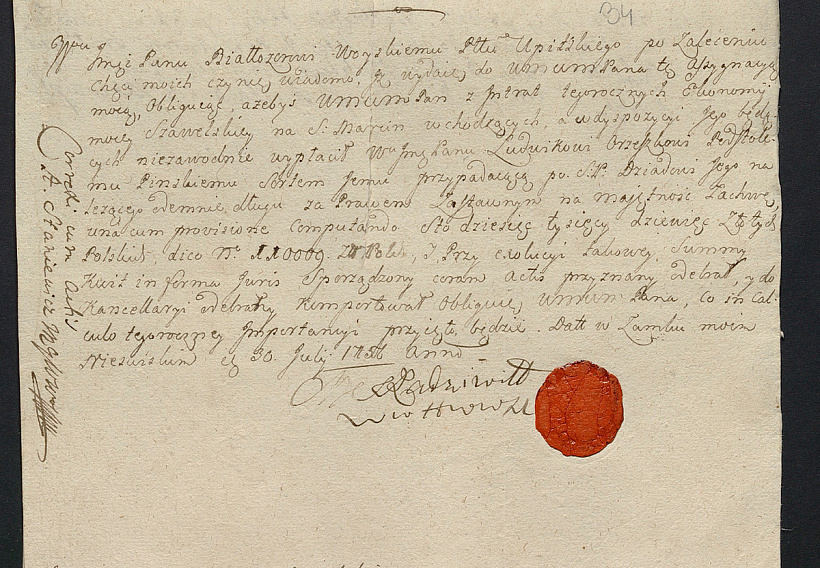 34
Imć Panu Białłozorowi Woyskiemu Pttu Upitskiego po Zaleceniu
Chęci moich czynię wiadomo, iż wydaię do UmcumPana tę Assygnacyą
moią, Obliguiąc, ażebyś UmcumPan z Intrat tegorocznych Ekonomij
moiey Szawelskiey na S. Marcin wchodzących, a w dyspozycyi Jego będą-
cych niezawodnie wypłacił Wu Imę Panu Ludwikowi Orzeszkowi Podstole-
mu Pinskiemu Sortem Jemu przypadaiącą po S.P. Dziadowi Jego na
leżącego odemnie długu za Prawem Zastawnym na maiętność Lachwę,
una cum provisione Computando Sto dziesięć tysięcy dziewięć Złotych
Polskich, dico No 110009. Zł Polch, J Przy exolucyi takowey Summy
Kwit in forma Juris Sporządzony coram Actis przyznany odebrał, y do
Kancellaryi odebrany komportował Obliguię UmcumPana, Co in Cal-
culo tegoroczney Importancyi przyięto będzie. Datt w Zamku moim
Nieswiskim d 30. Julij 1756 Anno
Radziwiłł
Correct. cum Actis
A. Staniewicz